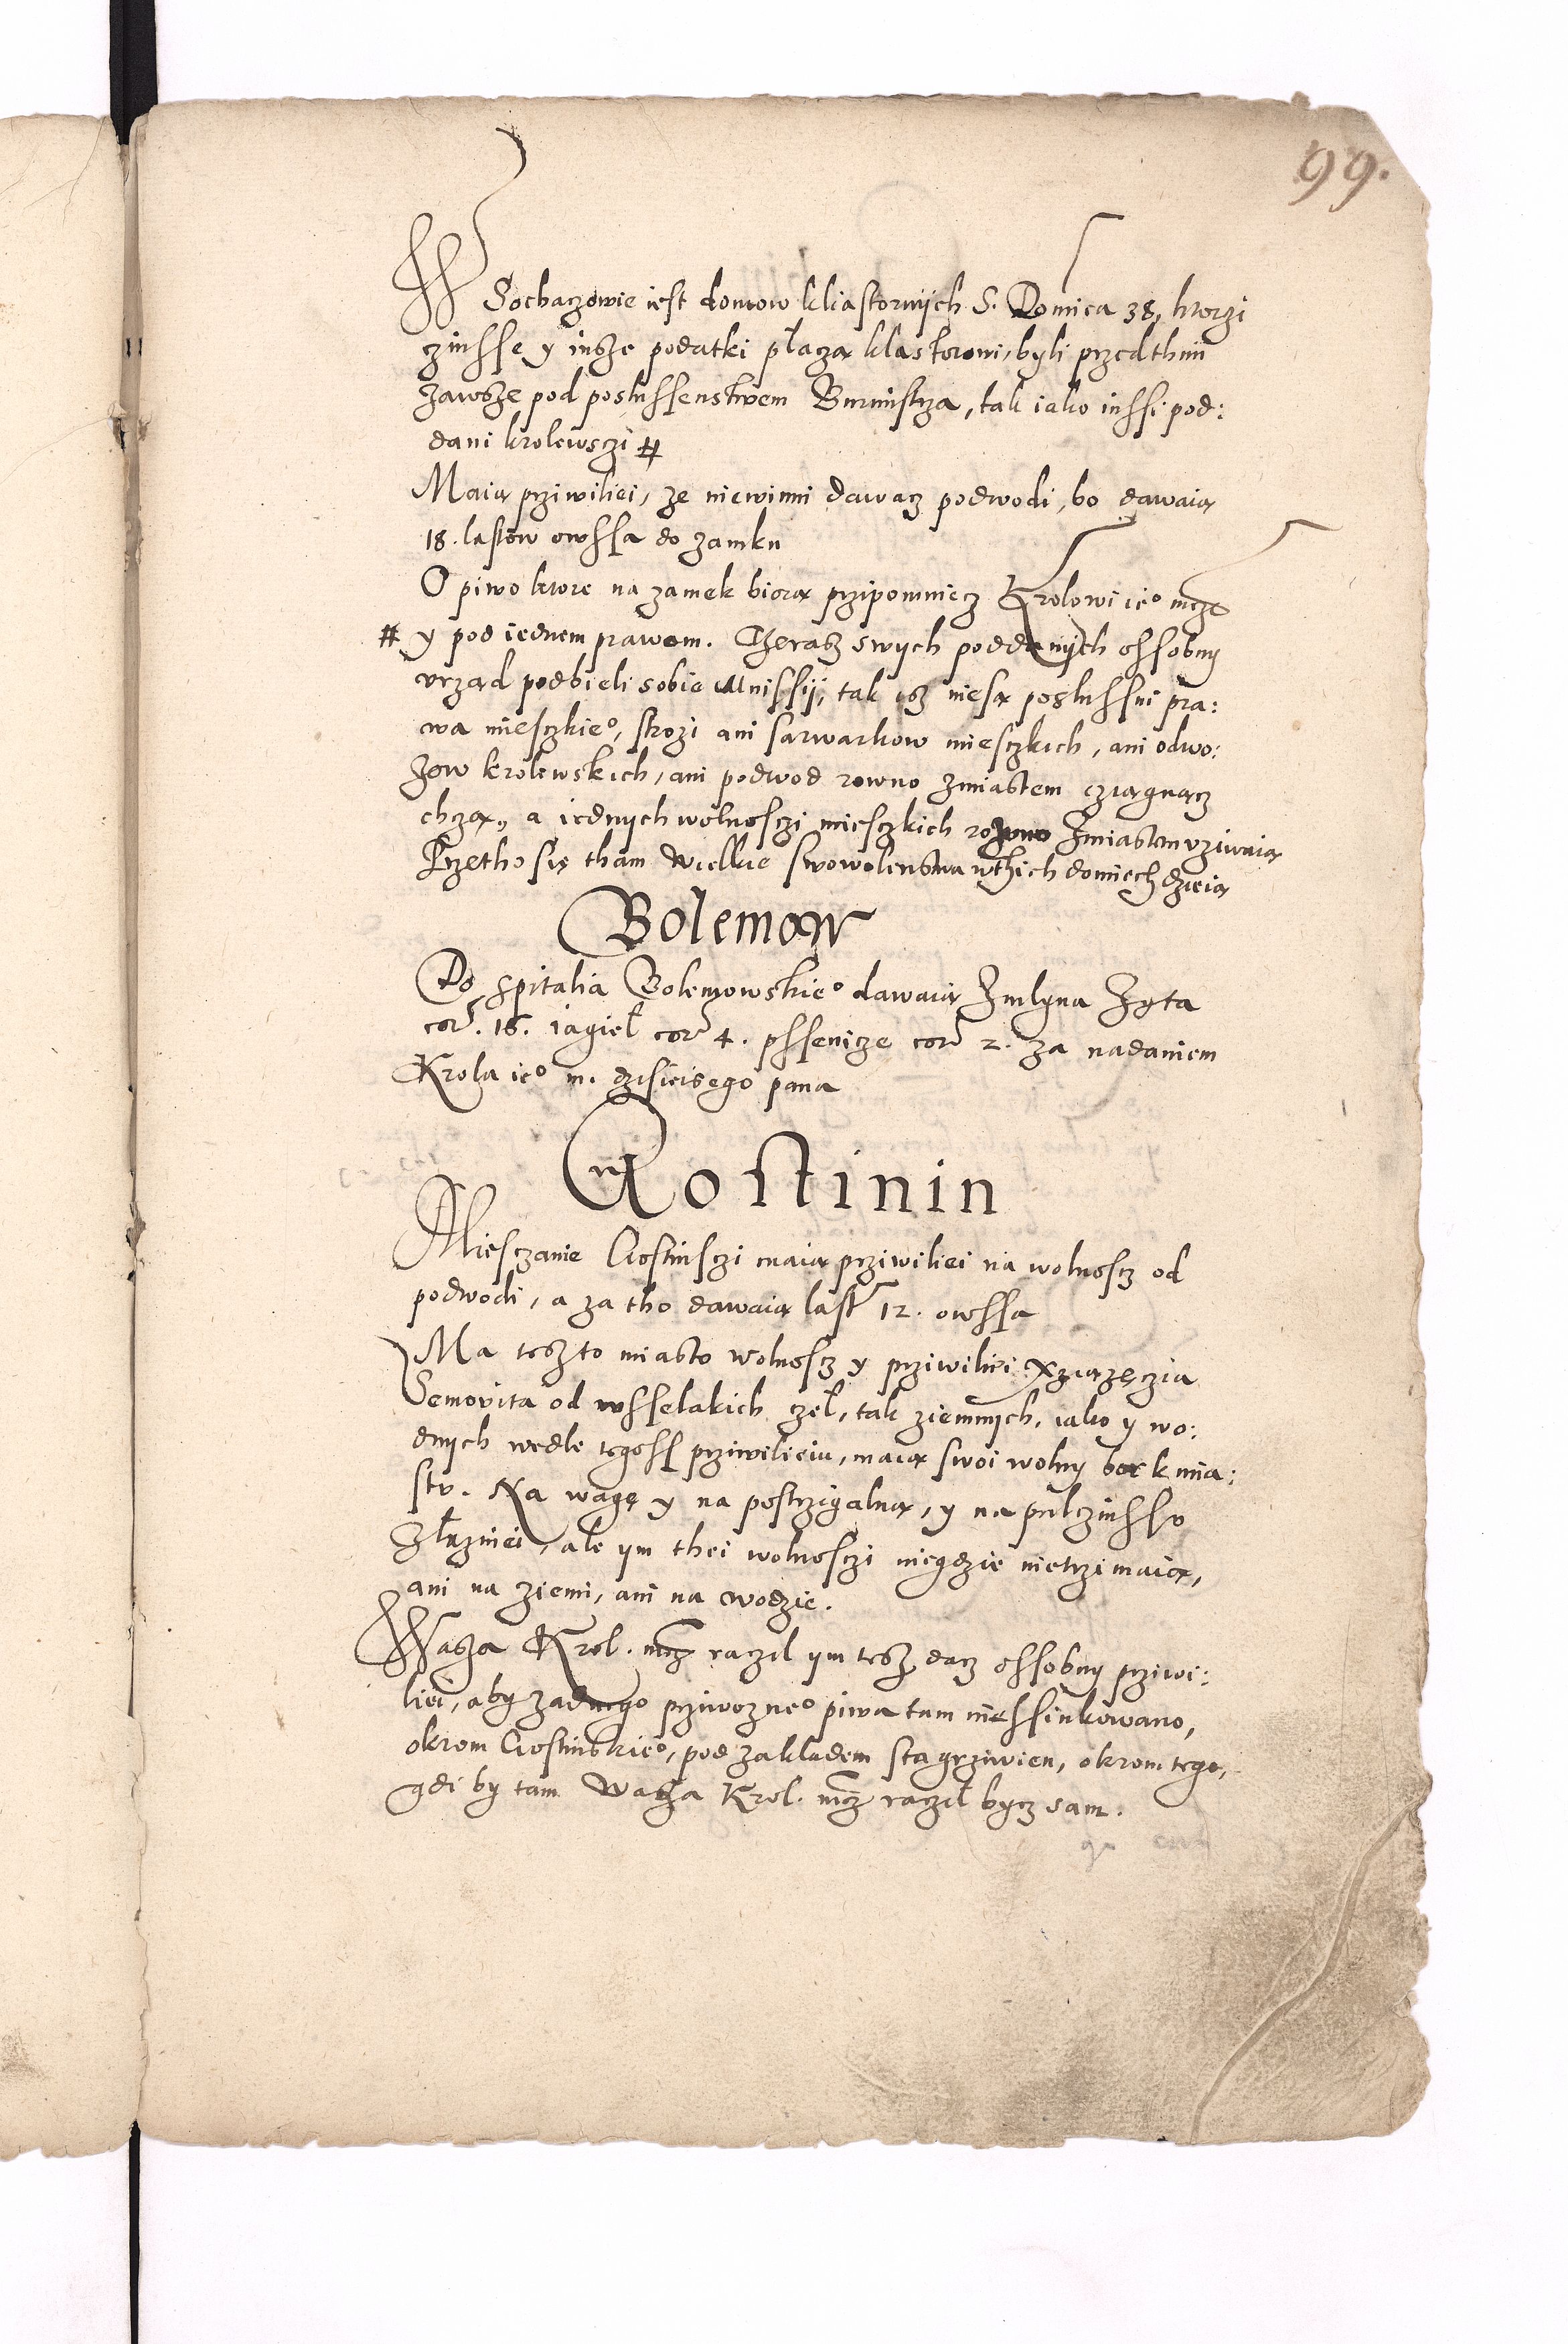 99.
W Sochaczowie iest domow kliastornÿch S. Domica 38, ktorzi
czinsse y insze podatki płaczą klastorowi, byli przed thim
zawsze pod poslussenstwem Burmistrza, tak iako inssi pod:
dani krolewsczi #
Maią prziwiliei, ze niewinni dawacz podwodi, bo dawaią
18. lastow owssa do zamku
O piwo ktore na zamek biorą przipomniecz Krolowi ieº mczi
# y pod iednem prawem. Theraz swych poddanÿch ossobny
vrzad podbieli sobie Mnissÿ, tak isz niesą poslussni pra:
wa miesczkieº, strozi ani sarwarkow miesczkich, ani odwo:
zow krolewskich, ani podwod rowno zmiastem cziągnącz
chczą,, a iednych wolnosczi miesczkich rowno zmiastem vziwaią
Przetho się tham wielkie swowolenstwa wthich domiech dzieią
Bolemow
Do spitalia Bolemowskieº dawaią zmlyna zyta
cor. 16. iagieł cor 4. pssenicze cor 2. za nadaniem
Krola ieº m. dzisieisego pana
Gostinin
Miesczanie Gostinsczi maią prziwiliei na wolnoscz od
podwodi, a za tho dawaią last 12. owssa
Ma tesz to miasto wolnoscz y prziwiliei Xziązęczia
Semovita od wsselakich czel, tak ziemnych, iako y wo:
dnych wedle tegoss prziwilieiu, maią swoi wolny bor k mia:
stu. Na wagę y na postrzigalną, y na pulczinsso
złazniei, ale ym thei wolnosczi niegdzie nietrzimaią,
ani na ziemi, ani na wodzie.
Wasza Krol. mcz raczil ym tesz dacz ossobny prziwi:
liei, aby zadnego prziwozneº piwa tam niessinkowano,
okrom Gostinskieº, pod zakladem sta grziwien, okrom tego,
gdi by tam Wasza Krol. mcz raczil bycz sam.